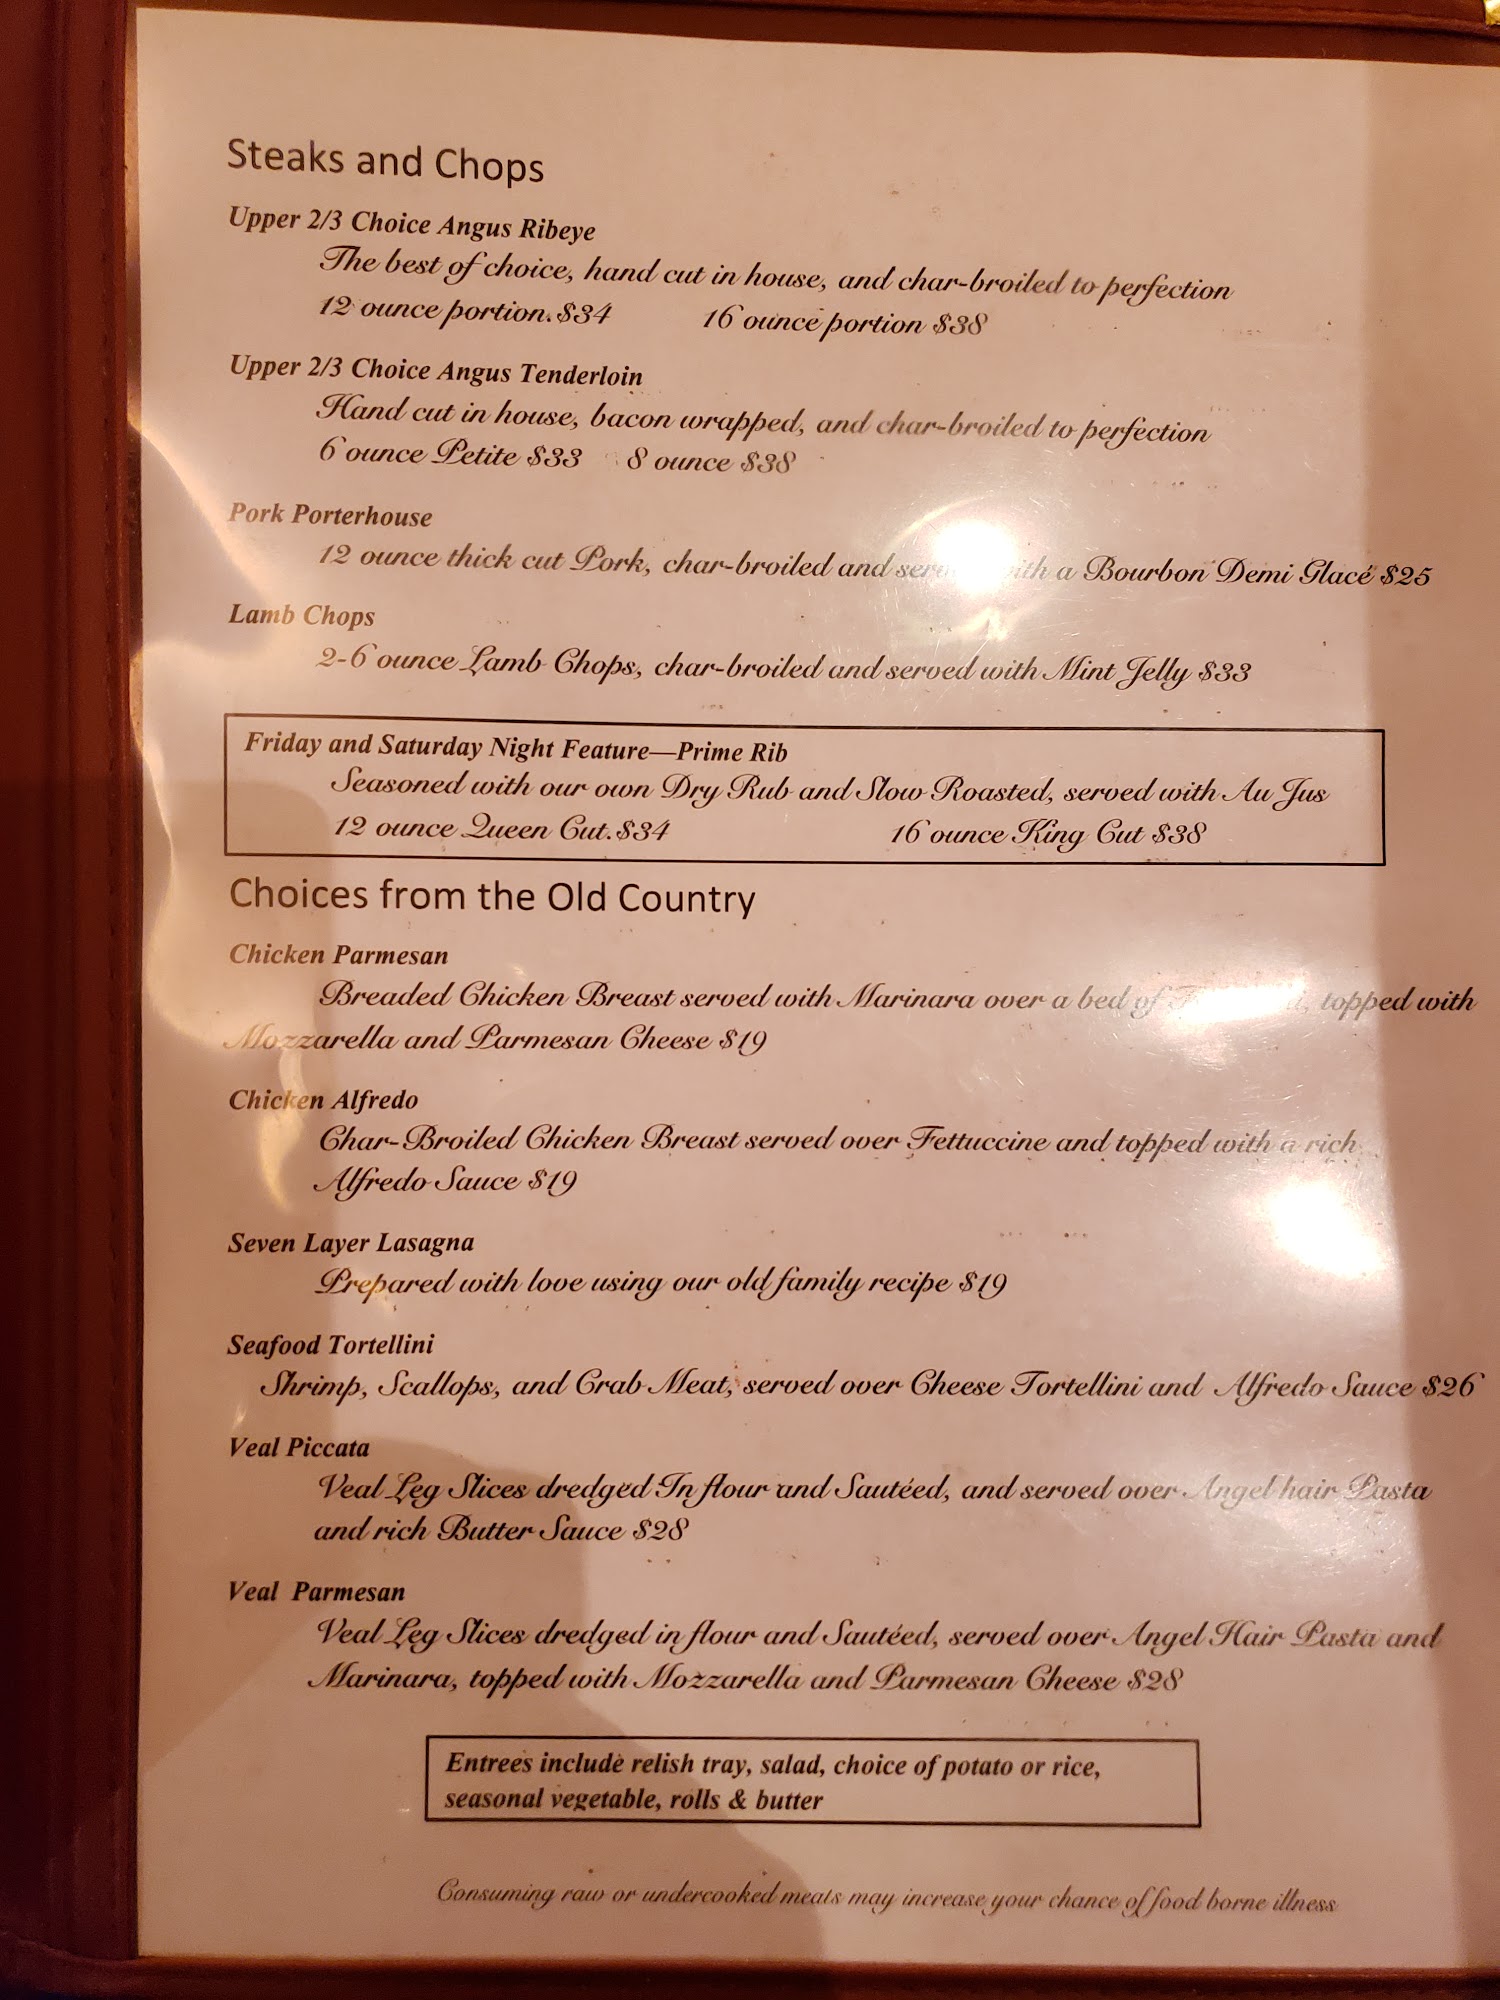 Steaks and Chops
Upper 2/3 Choice Angus Ribeye
The best of choice, hand cut in house, and char-broiled to perfection
12 ounce portion.$34 16 ounce portion $38
Upper 2/3 Choice Angus Tenderloin
Hand cut in house, bacon wrapped, and char-broiled to perfection
6 ounce Petite $33 8 ounce $38
Pork Porterhouse
12 ounce thick cut Pork, char-broiled and served with a Bourbon Demi Glacé $25
Lamb Chops
2-6 ounce Lamb Chops, char-broiled and served with Mint Jelly $33
Friday and Saturday Night Feature—Prime Rib
Seasoned with our own Dry Rub and Slow Roasted, served with Au Jus
12 ounce Queen Cut.$34 16 ounce King Cut $38
Choices from the Old Country
Chicken Parmesan
Breaded Chicken Breast served with Marinara over a bed of topped with
Mozzarella and Parmesan Cheese $19
Chicken Alfredo
Char-Broiled Chicken Breast served over Fettuccine and topped with a rich
Alfredo Sauce $19
Seven Layer Lasagna
Prepared with love using our old family recipe $19
Seafood Tortellini
Shrimp, Scallops, and Crab Meat, served over Cheese Tortellini and Alfredo Sauce $26
Veal Piccata
Veal Leg Slices dredged In flour and Sautéed, and served over Angel hair Pasta
and rich Butter Sauce $28
Veal Parmesan
Veal Leg Slices dredged in flour and Sautéed, served over Angel Hair Pasta and
Marinara, topped with Mozzarella and Parmesan Cheese $28
Entrees include relish tray, salad, choice of potato or rice,
seasonal vegetable, rolls & butter
Consuming raw or undercooked meats may increase your chance of food borne illness